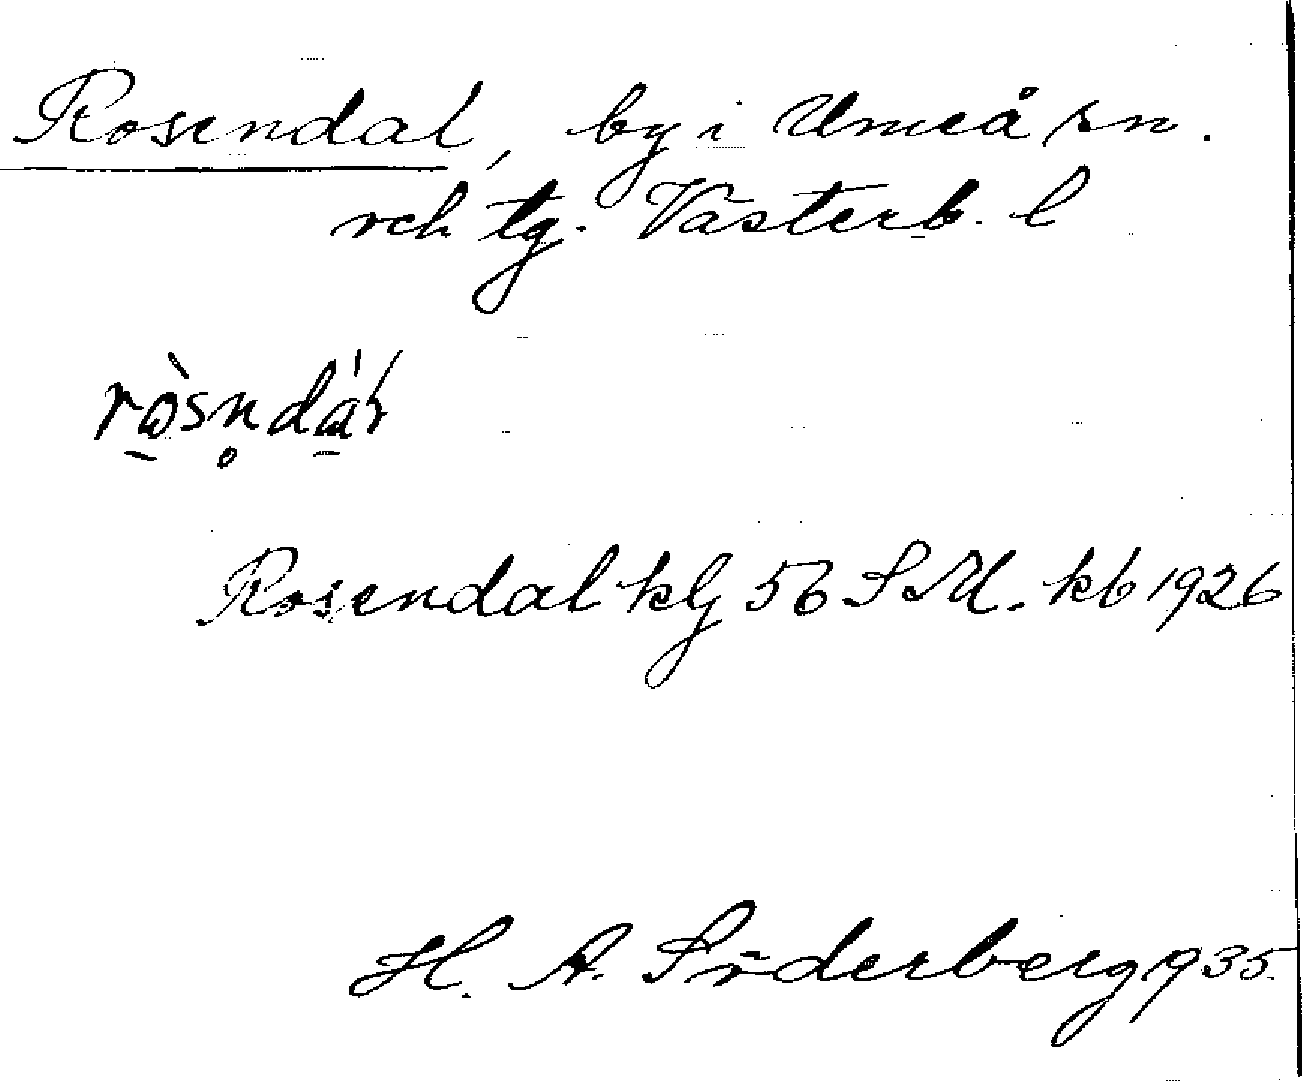 Rosendal, by i Umeå sn.
och tg. Västerb. l
ròsn̥dáł
Rosendal klj 56 S M. kb 1926
H. A. Söderberg 1935.